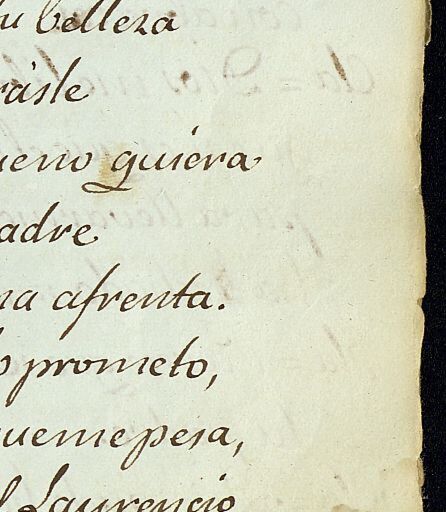 su belleza
raisle
ueno quiera
adre
na afrenta.
o prometo,
uemepesa,
l Laurencio